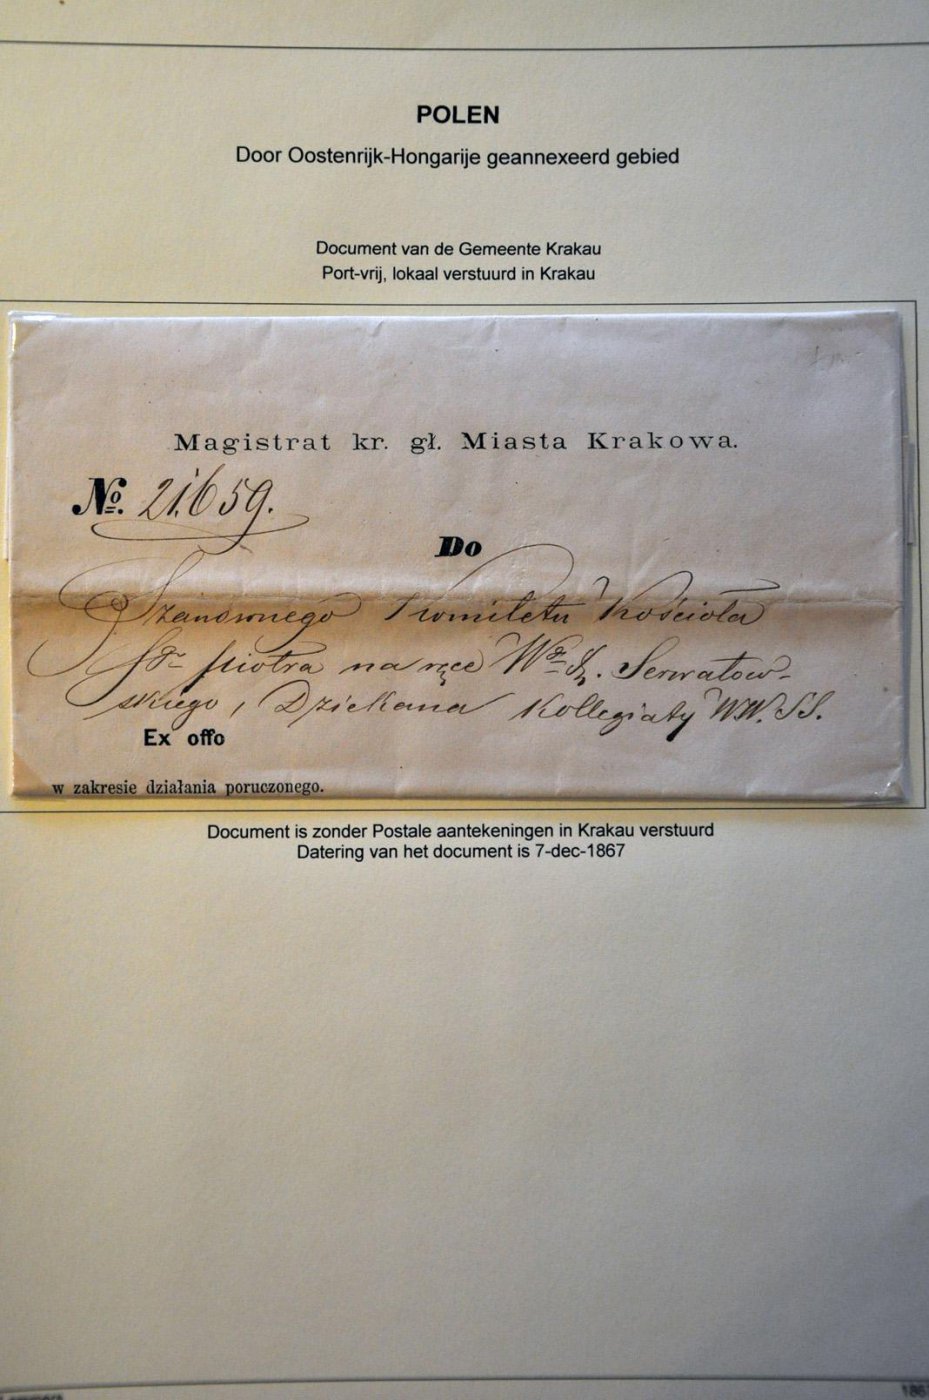 POLEN
Door Oostenrijk-Hongarije geannexeerd gebied
Document van de Gemeente Krakau
Port-vrij, lokaal verstuurd in Krakau
Magistrat kr. gł. Miasta Krakowa.
No. 21,659.
Do
Szanownego Komitetu Kościoła
Sgo Piotra na ręce Wgo X. Serwatow-
skiego, Dziekana Kollegiaty WW. SS.
Ex offo
w zakresie działania poruczonego.
Document is zonder Postale aantekeningen in Krakau verstuurd
Datering van het document is 7-dec-1867